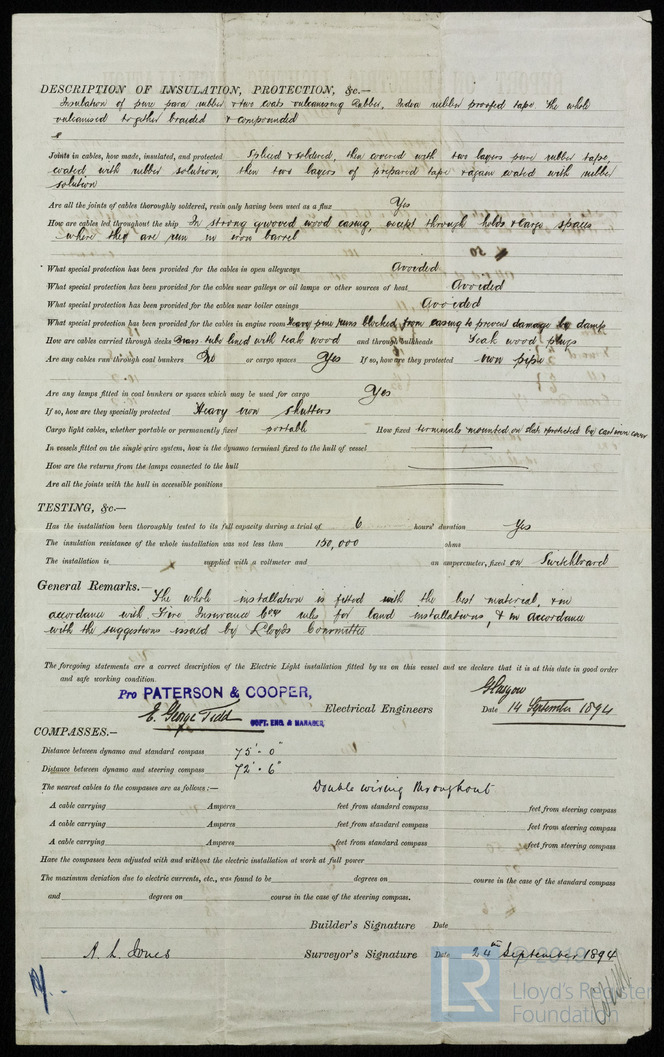 DESCRIPTION OF INSULATION, PROTECTION, &c.—
Insulation of pure para rubber & two coats vulcanising Rubber, India rubber proofed tape. The whole
vulcanised together braided & compounded
Joints in cables, how made, insulated, and protected Spliced & soldered, then covered with two layers pure rubber tape,
coated with rubber solution, then two layers of prepared tape & again coated with rubber
solution
Are all the joints of cables thoroughly soldered, resin only having been used as a flux Yes
How are cables led throughout the ship In strong grooved wood casing, except through holds & cargo spaces
where they are run in iron barrel
What special protection has been provided for the cables in open alleyways Avoided
What special protection has been provided for the cables near galleys or oil lamps or other sources of heat Avoided
What special protection has been provided for the cables near boiler casings Avoided
What special protection has been provided for the cables in engine room Heavy pine runs blocked from casing to prevent damage by damp
How are cables carried through decks Brass tube lined with teak wood and through bulkheads Teak wood plugs
Are any cables run through coal bunkers No or cargo spaces Yes If so, how are they protected iron pipe
Are any lamps fitted in coal bunkers or spaces which may be used for cargo Yes
If so, how are they specially protected Heavy iron shutters
Cargo light cables, whether portable or permanently fixed portable How fixed terminals mounted on slate & protected by cast iron cover
In vessels fitted on the single wire system, how is the dynamo terminal fixed to the hull of vessel
How are the returns from the lamps connected to the hull
Are all the joints with the hull in accessible positions
TESTING, &c.—
Has the installation been thoroughly tested to its full capacity during a trial of 6 hours' duration Yes
The insulation resistance of the whole installation was not less than 150,000 ohms
The installation is supplied with a voltmeter and an amperemeter, fixed on Switchboard
General Remarks.—
The whole installation is fitted with the best material, & in
accordance with Fire Insurance Coys rules for land installations, & in accordance
with the suggestions issued by Lloyds Committee
The foregoing statements are a correct description of the Electric Light installation fitted by us on this vessel and we declare that it is at this date in good order
and safe working condition.
Glasgow
Pro PATERSON & COOPER,
E. George Tidd Electrical Engineers Date 14 September 1894
SUPT. ENG. & MANAGER.
COMPASSES.—
Distance between dynamo and standard compass 75'-0"
Distance between dynamo and steering compass 72'-6"
The nearest cables to the compasses are as follows:— Double wiring throughout
A cable carrying Amperes feet from standard compass feet from steering compass
A cable carrying Amperes feet from standard compass feet from steering compass
A cable carrying Amperes feet from standard compass feet from steering compass
Have the compasses been adjusted with and without the electric installation at work at full power
The maximum deviation due to electric currents, etc., was found to be degrees on course in the case of the standard compass
and degrees on course in the case of the steering compass.
Builder's Signature Date
A. L. Jones Surveyor's Signature Date 24th September 1894
© 2019
LR
Lloyd's Register
Foundation